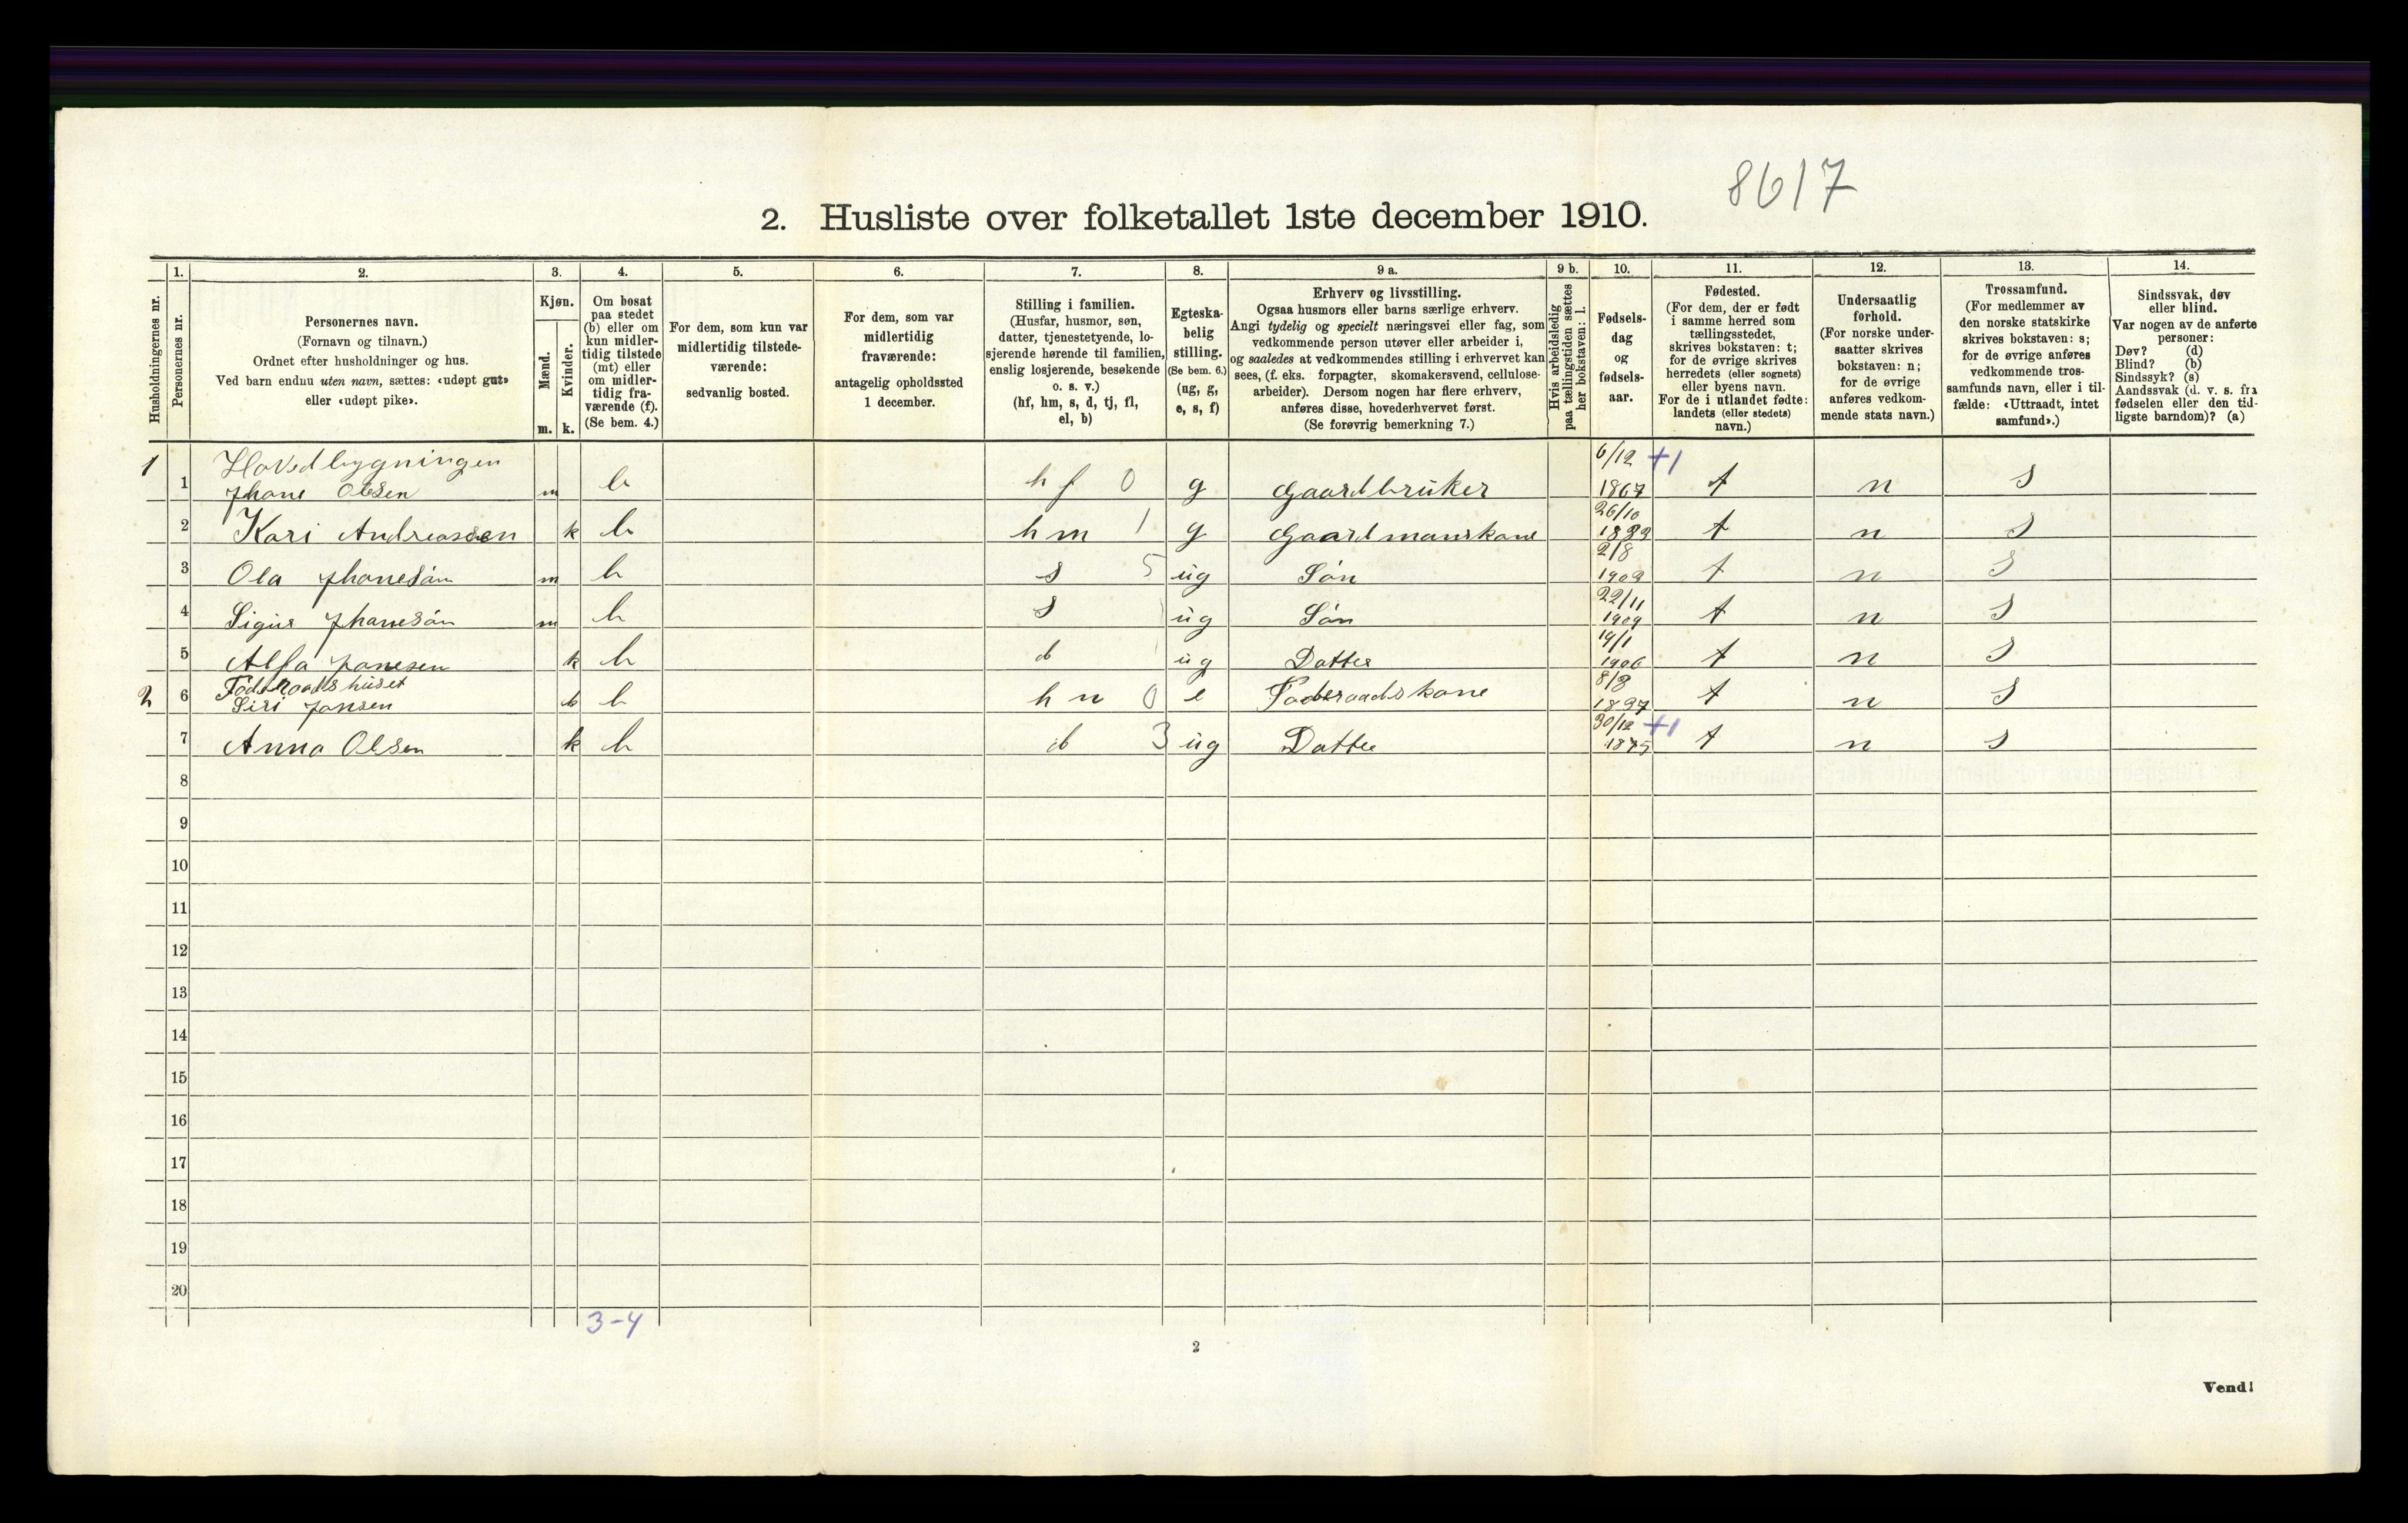 8617
2. Husliste over folketallet 1ste december 1910.
Husholdningernes nr.
1.
Personernes nr.
2.
Personernes navn.
(Fornavn og tilnavn.)
Ordnet efter husholdninger og hus.
Ved barn endnu uten navn, sættes: «udøpt gut»
eller «udøpt pike».
3.
Kjøn.
Mænd.
Kvinder.
m. k.
4.
Om bosat
paa stedet
(b) eller om
kun midler-
tidig tilstede
(mt) eller
om midler-
tidig fra-
værende (f).
(Se bem. 4.)
5.
For dem, som kun var
midlertidig tilstede-
værende:
sedvanlig bosted.
6.
For dem, som var
midlertidig
fraværende:
antagelig opholdssted
1 december.
7.
Stilling i familien.
(Husfar, husmor, søn,
datter, tjenestetyende, lo-
sjerende hørende til familien,
enslig losjerende, besøkende
o. s. v.)
(hf, hm, s, d, tj, fl,
el, b)
8.
Egteska-
belig
stilling.
(Se bem. 6.)
(ug, g,
e, s, f)
9 a.
Erhverv og livsstilling.
Ogsaa husmors eller barns særlige erhverv.
Angi tydelig og specielt næringsvei eller fag, som
vedkommende person utøver eller arbeider i,
og saaledes at vedkommendes stilling i erhvervet kan
sees, (f. eks. forpagter, skomakersvend, cellulose-
arbeider). Dersom nogen har flere erhverv,
anføres disse, hovederhvervet først.
(Se forøvrig bemerkning 7.)
9 b.
Hvis arbeidsledig
paa tællingstiden sættes
her bokstaven: l.
10.
Fødsels-
dag
og
fødsels-
aar.
11.
Fødested.
(For dem, der er født
i samme herred som
tællingsstedet,
skrives bokstaven: t;
for de øvrige skrives
herredets (eller sognets)
eller byens navn.
For de i utlandet fødte:
landets (eller stedets)
navn.)
12.
Undersaatlig
forhold.
(For norske under-
saatter skrives
bokstaven: n;
for de øvrige
anføres vedkom-
mende stats navn.)
13.
Trossamfund.
(For medlemmer av
den norske statskirke
skrives bokstaven: s;
for de øvrige anføres
vedkommende tros-
samfunds navn, eller i til-
fælde: «Uttraadt, intet
samfund».)
14.
Sindssvak, døv
eller blind.
Var nogen av de anførte
personer:
Døv? (d)
Blind? (b)
Sindssyk? (s)
Aandssvak (d. v. s. fra
fødselen eller den tid-
ligste barndom)? (a)
1 Hovedbygningen 6/12 +1
1 Jhane Olsen m b hf 0 g Gaardbruker 1867 t n s
26/10
2 Kari Andreassen k b hm 1 g Gaardmanskone t n s
2/8
3 Ola Jhanesøn m b s 5 ug Søn t n s
22/11
4 Jhanesøn m b s ug Søn 1909 t n s
19/1
5 Janesen k b d ug Datter 1906 t n s
2 Føderaadshuset
6 Siri Jansen k b 0 e Føderaadskone t n s
30/12 +1
7 Anna Olsen k b d 3 ug Datter 1875 t n s
8
9
10
11
12
13
14
15
16
17
18
19
20
3-4
2
Vend!